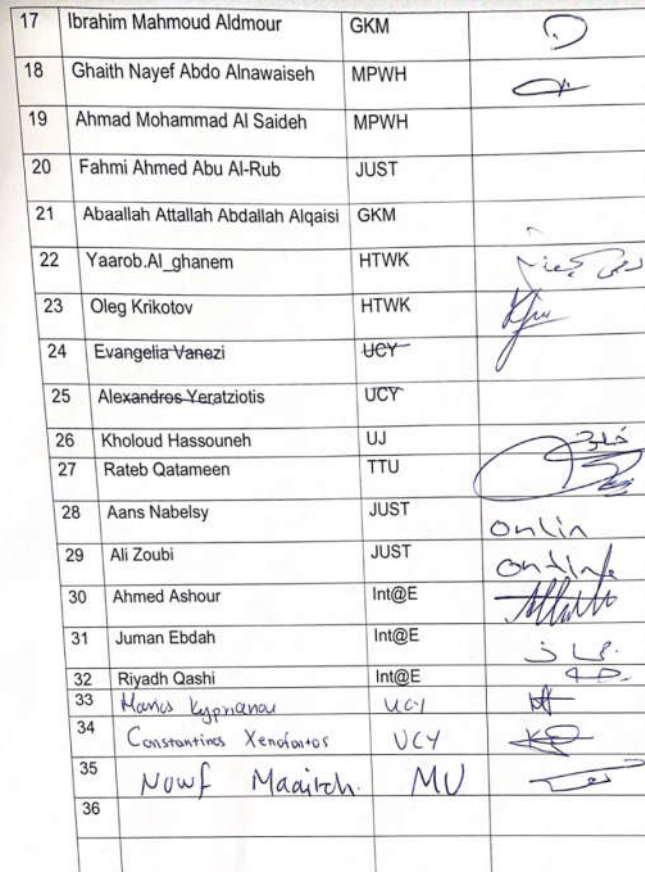 17 Ibrahim Mahmoud Aldmour GKM
18 Ghaith Nayef Abdo Alnawaiseh MPWH
19 Ahmad Mohammad Al Saideh MPWH
20 Fahmi Ahmed Abu Al-Rub JUST
21 Abaallah Attallah Abdallah Alqaisi GKM
22 Yaarob.Al_ghanem HTWK
23 Oleg Krikotov HTWK
24 Evangelia Vanezi UCY
25 Alexandros Yeratziotis UCY
26 Kholoud Hassouneh UJ خلود
27 Rateb Qatameen TTU
28 Aans Nabelsy JUST onlin
29 Ali Zoubi JUST online
30 Ahmed Ashour Int@E
31 Juman Ebdah Int@E
32 Riyadh Qashi Int@E
33 Marios Kyprianou UCY
34 Constantinos Xenofontos UCY
35 Nowf Maaitah. MU
36